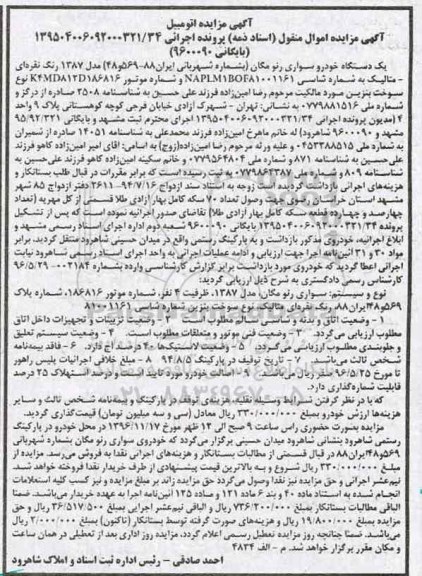 آگهی مزایده اتومبیل
آگهی مزایده اموال منقول (اسناد ذمه) پرونده اجرائی ۱۳۹۵۰۴۰۰۶۰۹۲۰۰۰۳۲۱/۳۴
(بایگانی ۹۶۰۰۰۹۰)
یک دستگاه خودرو سواری رنو مگان (بشماره شهربانی ایران۸۸-۵۶۹و۴۸) مدل ۱۳۸۷ رنگ نقره‌ای
- متالیک به شماره شاسی NAPLM1BOFA1001161 و شماره موتور K4MDA12D186816 نوع
سیوخت بنزین مورد مالکیت مرحوم رضا امین زاده فرزند علی حسین به شناسنامه ۲۵۰۸ صادره از درگز و
شماره ملی ۰۷۷۹۸۸۱۵۱۶ به نشانی: تهران - شهرک آزادی خیابان فرجی کوچه کوهستانی پلاک ۹ واحد
۴ (مدیون پرونده اجرائی ۱۳۹۵۰۴۰۰۶۰۹۲۰۰۰۳۲۱/۳۴ اجرای محترم ثبت مشهد و بایگانی ۹۵/۹۲/۳۲۱
مشهد و ۹۶۰۰۰۹۰ شاهرود) له خانم ماهرخ امین‌زاده فرزند محمدعلی به شناسنامه ۱۴۰۵۱ صادره از شمیران
به شماره ملی ۰۴۵۳۳۸۸۵۱۵ و علیه ورثه مرحوم رضا امین‌زاده(زوج) به اسامی: آقای امیر امین‌زاده کاهو فرزند
علی‌حسین به شناسنامه ۸۷۱ و شماره ملی ۰۷۷۹۵۶۴۸۰۴ و خانم سکینه امین‌زاده کاهو فرزند علی‌حسین به
شناسنامه ۸۰۹ و شماره ملی ۰۷۷۹۸۶۲۳۸۷ به ثبت رسیده است که برابر مقررات در قبال طلب بستانکار و
هزینه‌های اجرائی بازداشت گردیده است زوجه به استناد سند ازدواج ۹۴/۷/۱۶-۲۶۱۱ دفتر ازدواج ۸۵ شهر
مشهد استان خراسان رضوی جهت وصول تعداد ۷۰ سکه کامل بهار آزادی طلا قسمتی از کل مهریه (تعداد
چهارصد و چهارده قطعه سکه کامل بهار آزادی طلا) تقاضای صدور اجرائیه نموده است که پس از تشکیل
پرونده ۱۳۹۵۰۴۰۰۶۰۹۲۰۰۰۳۲۱/۳۴ بایگانی ۹۶۰۰۰۹۰ شعبه دوم اداره اجرای اسناد رسمی مشهد و
ابلاغ اجرائیه، خودروی مذکور بازداشت و به پارکینگ رسمی واقع در میدان حسینی شاهرود منتقل گردید، برابر
مواد ۳۰ و ۳۱ آئین‌نامه اجرا جهت ارزیابی و ادامه عملیات اجرائی به واحد اجرای اسناد رسمی شاهرود نیابت
اجرائی اعطا گردید که خودروی مورد بازداشت برابر گزارش کارشناسی وارده بشماره ۰۰۳۱۸۴-۹۶/۵/۲۹
کارشناس رسمی دادگستری به شرح ذیل ارزیابی گردید:
نوع و سیستم: سواری رنو مگان، مدل ۱۳۸۷، ظرفیت ۴ نفر، شماره موتور ۱۸۶۸۱۶، شماره پلاک
۵۶۹و۴۸ایران۸۸، رنگ نقره‌ای متالیک، نوع سوخت بنزین شماره شاسی ۸۱۰۰۱۱۶۱
۱ - وضعیت اتاق و بدنه و رنگ شاسی سالم مطلوب است. ۲ - وضعیت تزیینات و تجهیزات داخل اتاق
مطلوب ارزیابی می‌گردد. ۳ - وضعیت فنی موتور و متعلقات مطلوب است. ۴ - وضعیت سیستم تعلیق
و جلوبندی مطلوب ارزیابی می‌گردد. ۵ - وضعیت لاستیک‌ها ۴۰ درصد آج دارد. ۶ - فاقد بیمه‌نامه
شخص ثالث می‌باشد. ۷ - تاریخ توقیف در پارکینگ ۹۴/۸/۵ ۸ - مبلغ خلافی اجرائیات پلیس راهور
تا مورخ ۹۶/۵/۲۵ صفر ریال می‌باشد. ۹ - اصالت خودرو مورد تأیید است و درصد استهلاک ۲۵ درصد
قابلیت شماره‌گذاری دارد.
که با در نظر گرفتن شرایط وسیله نقلیه، هزینه‌ی توقف در پارکینگ و بیمه‌نامه شخص ثالث و سایر
هزینه‌ها ارزش خودرو بمبلغ ۳۳۰/۰۰۰/۰۰۰ ریال معادل (سی و سه میلیون تومان) قیمت‌گذاری گردید.
مزایده بصورت حضوری راس ساعت ۹ صبح الی ۱۲ ظهر مورخ ۱۳۹۶/۱۱/۱۷ در محل خودرو در پارکینگ
رسمی شاهرود بنشانی شاهرود میدان حسینی برگزار می‌گردد که خودروی سواری رنو مگان بشماره شهربانی
۵۶۹و۴۸ایران۸۸ در قبال قسمتی از مطالبات بستانکار و هزینه‌های اجرائی نقدا به فروش می‌رسد. مزایده از
مبلغ ۳۳۰/۰۰۰/۰۰۰ ریال شروع و به بالاترین قیمت پیشنهادی از طرف خریدار نقدا فروخته خواهد شد.
نیم‌عشر اجرائی و حق مزایده نیز نقدا وصول می‌گردد حق مزایده زائد بر مبلغ مزایده و نیز کسب کلیه استعلامات
انجام شده به استناد ماده ۴۰ و بند ۶ ماده ۱۲۱ و ماده ۱۲۵ آئین‌نامه اجرا به عهده خریدار می‌باشد. ضمنا
الباقی مطالبات بستانکار بمبلغ ۷۳۶/۲۰۰/۰۰۰ ریال و الباقی نیم‌عشر اجرایی بمبلغ ۳۶/۵۱۷/۵۰۰ ریال و حق
مزایده بمبلغ ۱۹/۸۰۰/۰۰۰ ریال و هزینه‌های صورت گرفته توسط بستانکار (تاکنون) بمبلغ ۲/۰۰۰/۰۰۰ ریال
می‌باشد. ضمنا چنانچه روز مزایده تعطیل رسمی اعلام گردد، مزایده روز اداری بعد از تعطیلی در همان ساعت
و مکان مقرر برگزار خواهد شد. م - الف ۴۸۳۴
احمد صادقی - رئیس اداره ثبت اسناد و املاک شاهرود